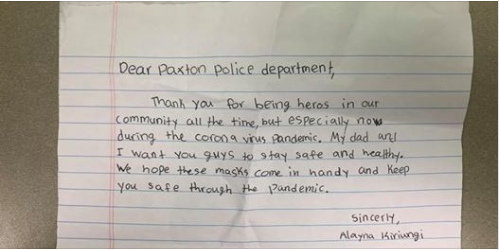 Dear Paxton Police department,
Thank you for being heros in our
community all the time, but especially now
during the corona virus pandemic. My dad and
I want you guys to stay safe and healthy.
We hope these masks come in handy and keep
you safe through the pandemic.
Sincerly,
Alayna Kiriungi